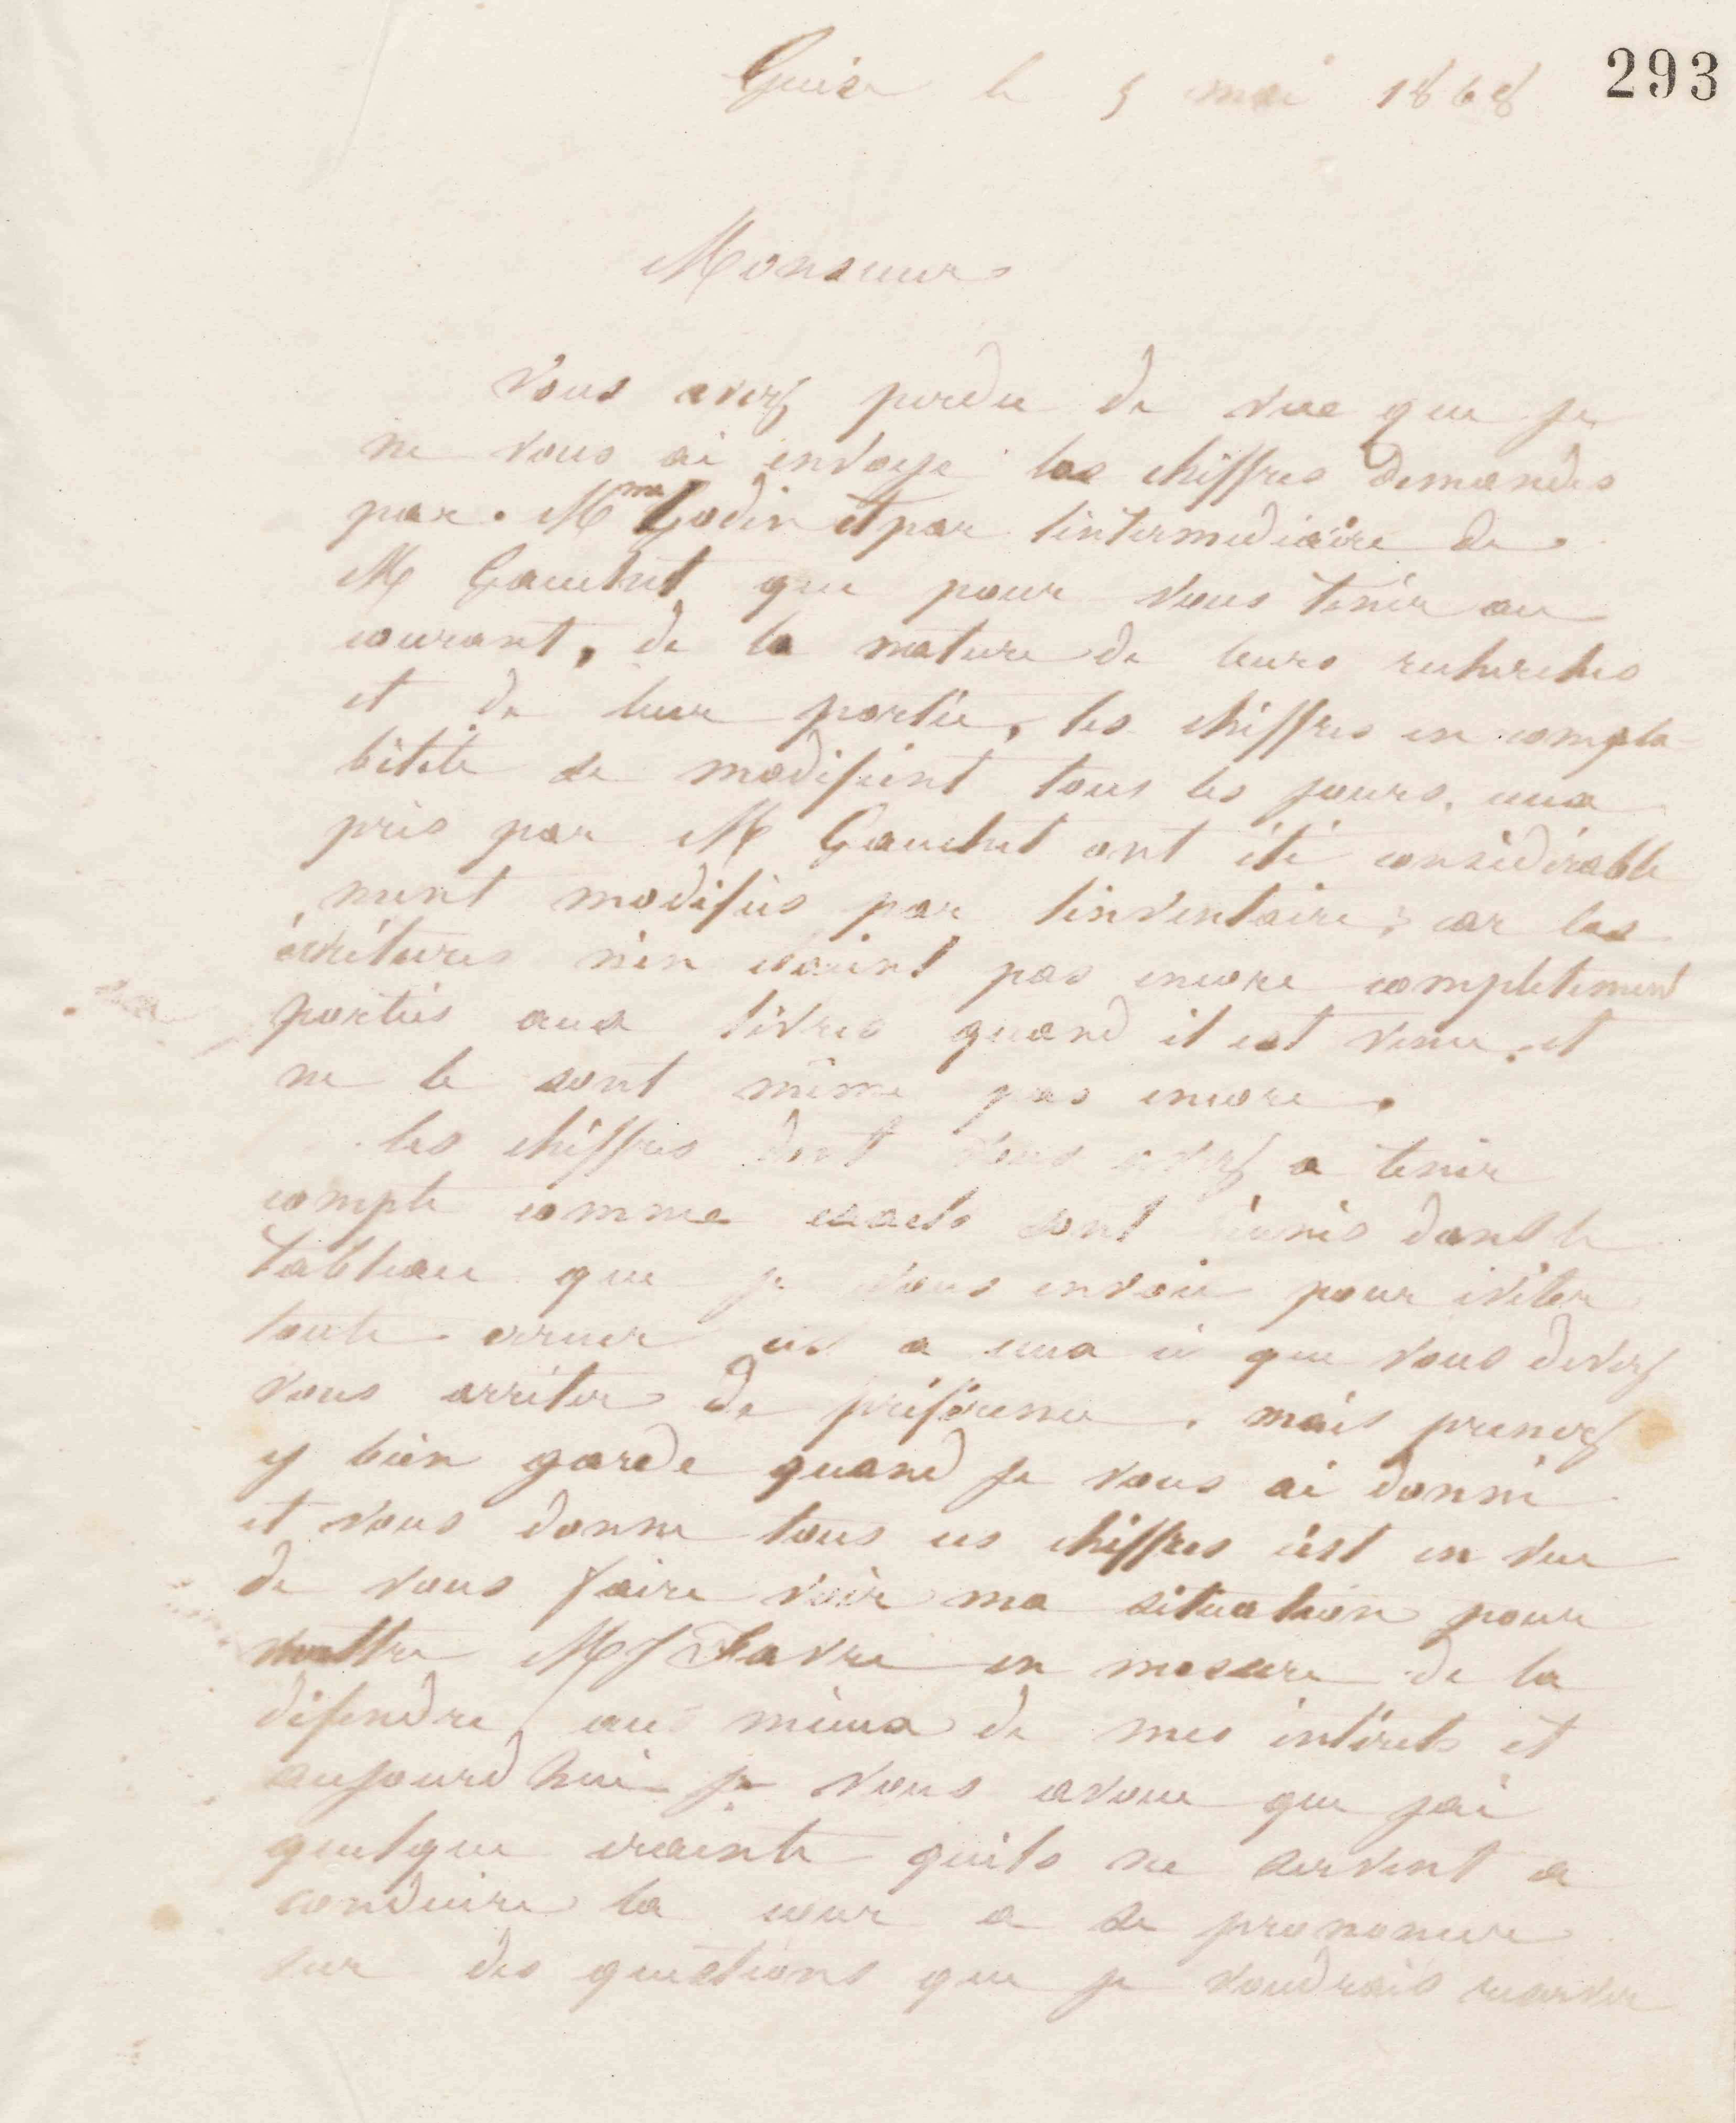 Guise le 5 mai 1868 293
Monsieur
Vous avez perdu de vue que je
ne vous ai envoyé les chiffres demandés
par Mme Godin et par lintermediaire de
M Gauchet que pour vous tenir au
courant, de la nature de leurs recherches
et de leur portée, les chiffres en compta-
bilité se modifient tous les jours, ceux
pris par M Gauchet ont été considérable
ment modifiés par linventaire, car les
écritures n'en étaient pas encore completement
portées aux livres quand il est venu, et
ne le sont même pas encore.
les chiffres dont vous avez a tenir
compte comme exacts sont réunis dans le
tableau que je vous envoie pour éviter
toute erreur a ceux ci que vous devez
vous arrêter de préférence, mais prenez
y bien garde quand je vous ai donné
et vous donne tous ces chiffres c'est en vue
de vous faire voir ma situation pour
mettre M J Favre en mesure de la
défendre, au mieux de mes intérets et
aujourdhui je vous avoue que jai
quelque crainte quils ne servent a
conduire la cour a se prononcer
sur des questions que je voudrais reserver